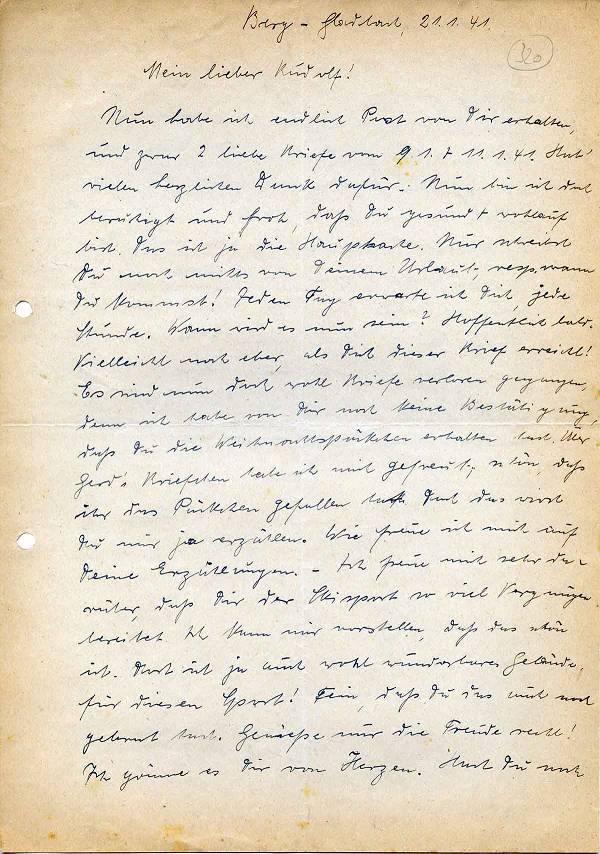 Berg-Gladbach, 21.1.41.
320
Mein lieber Rudolf!
Nun habe ich endlich Post von Dir erhalten,
und zwar 2 liebe Briefe vom 9.1. + 11.1.41. Hab'
vielen herzlichen Dank dafür. Nun bin ich doch
beruhigt und froh, daß Du gesund + wohlauf
bist. Das ist ja die Hauptsache. Nur schreibst
Du noch nichts von Deinem Urlaub, resp. wann
Du kommst! Jeden Tag erwarte ich Dich, jede
Stunde. Wann wird es nun sein? Hoffentlich bald.
Vielleicht noch eher, als Dich dieser Brief erreicht!
Es sind nun doch wohl Briefe verloren gegangen,
denn ich habe von Dir noch keine Bestätigung,
daß Du die Weihnachtspäckchen erhalten hast. Über
Gerd's Briefchen habe ich mich gefreut, schön, daß
ihr das Päckchen gefallen hat. Doch das wirst
Du mir ja erzählen. Wie freue ich mich auf
Deine Erzählungen. – Ich freue mich sehr da-
rüber, daß Dir der Skisport so viel Vergnügen
bereitet. Ich kann mir vorstellen, daß das schön
ist. Dort ist ja auch wohl wunderbares Gelände,
für diesen Sport! Fein, daß Du das auch noch
gelernt hast. Genieße nur die Freude recht!
Ich gönne es Dir von Herzen. Hast Du noch